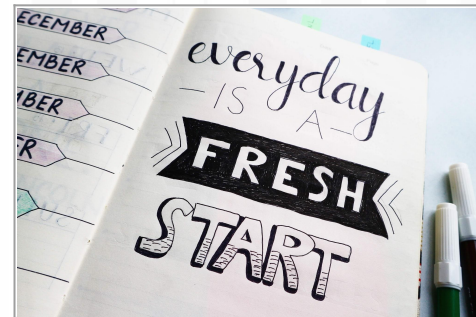 ECEMBER
EMBER
BER
ER
everyday
-IS A-
FRESH
START